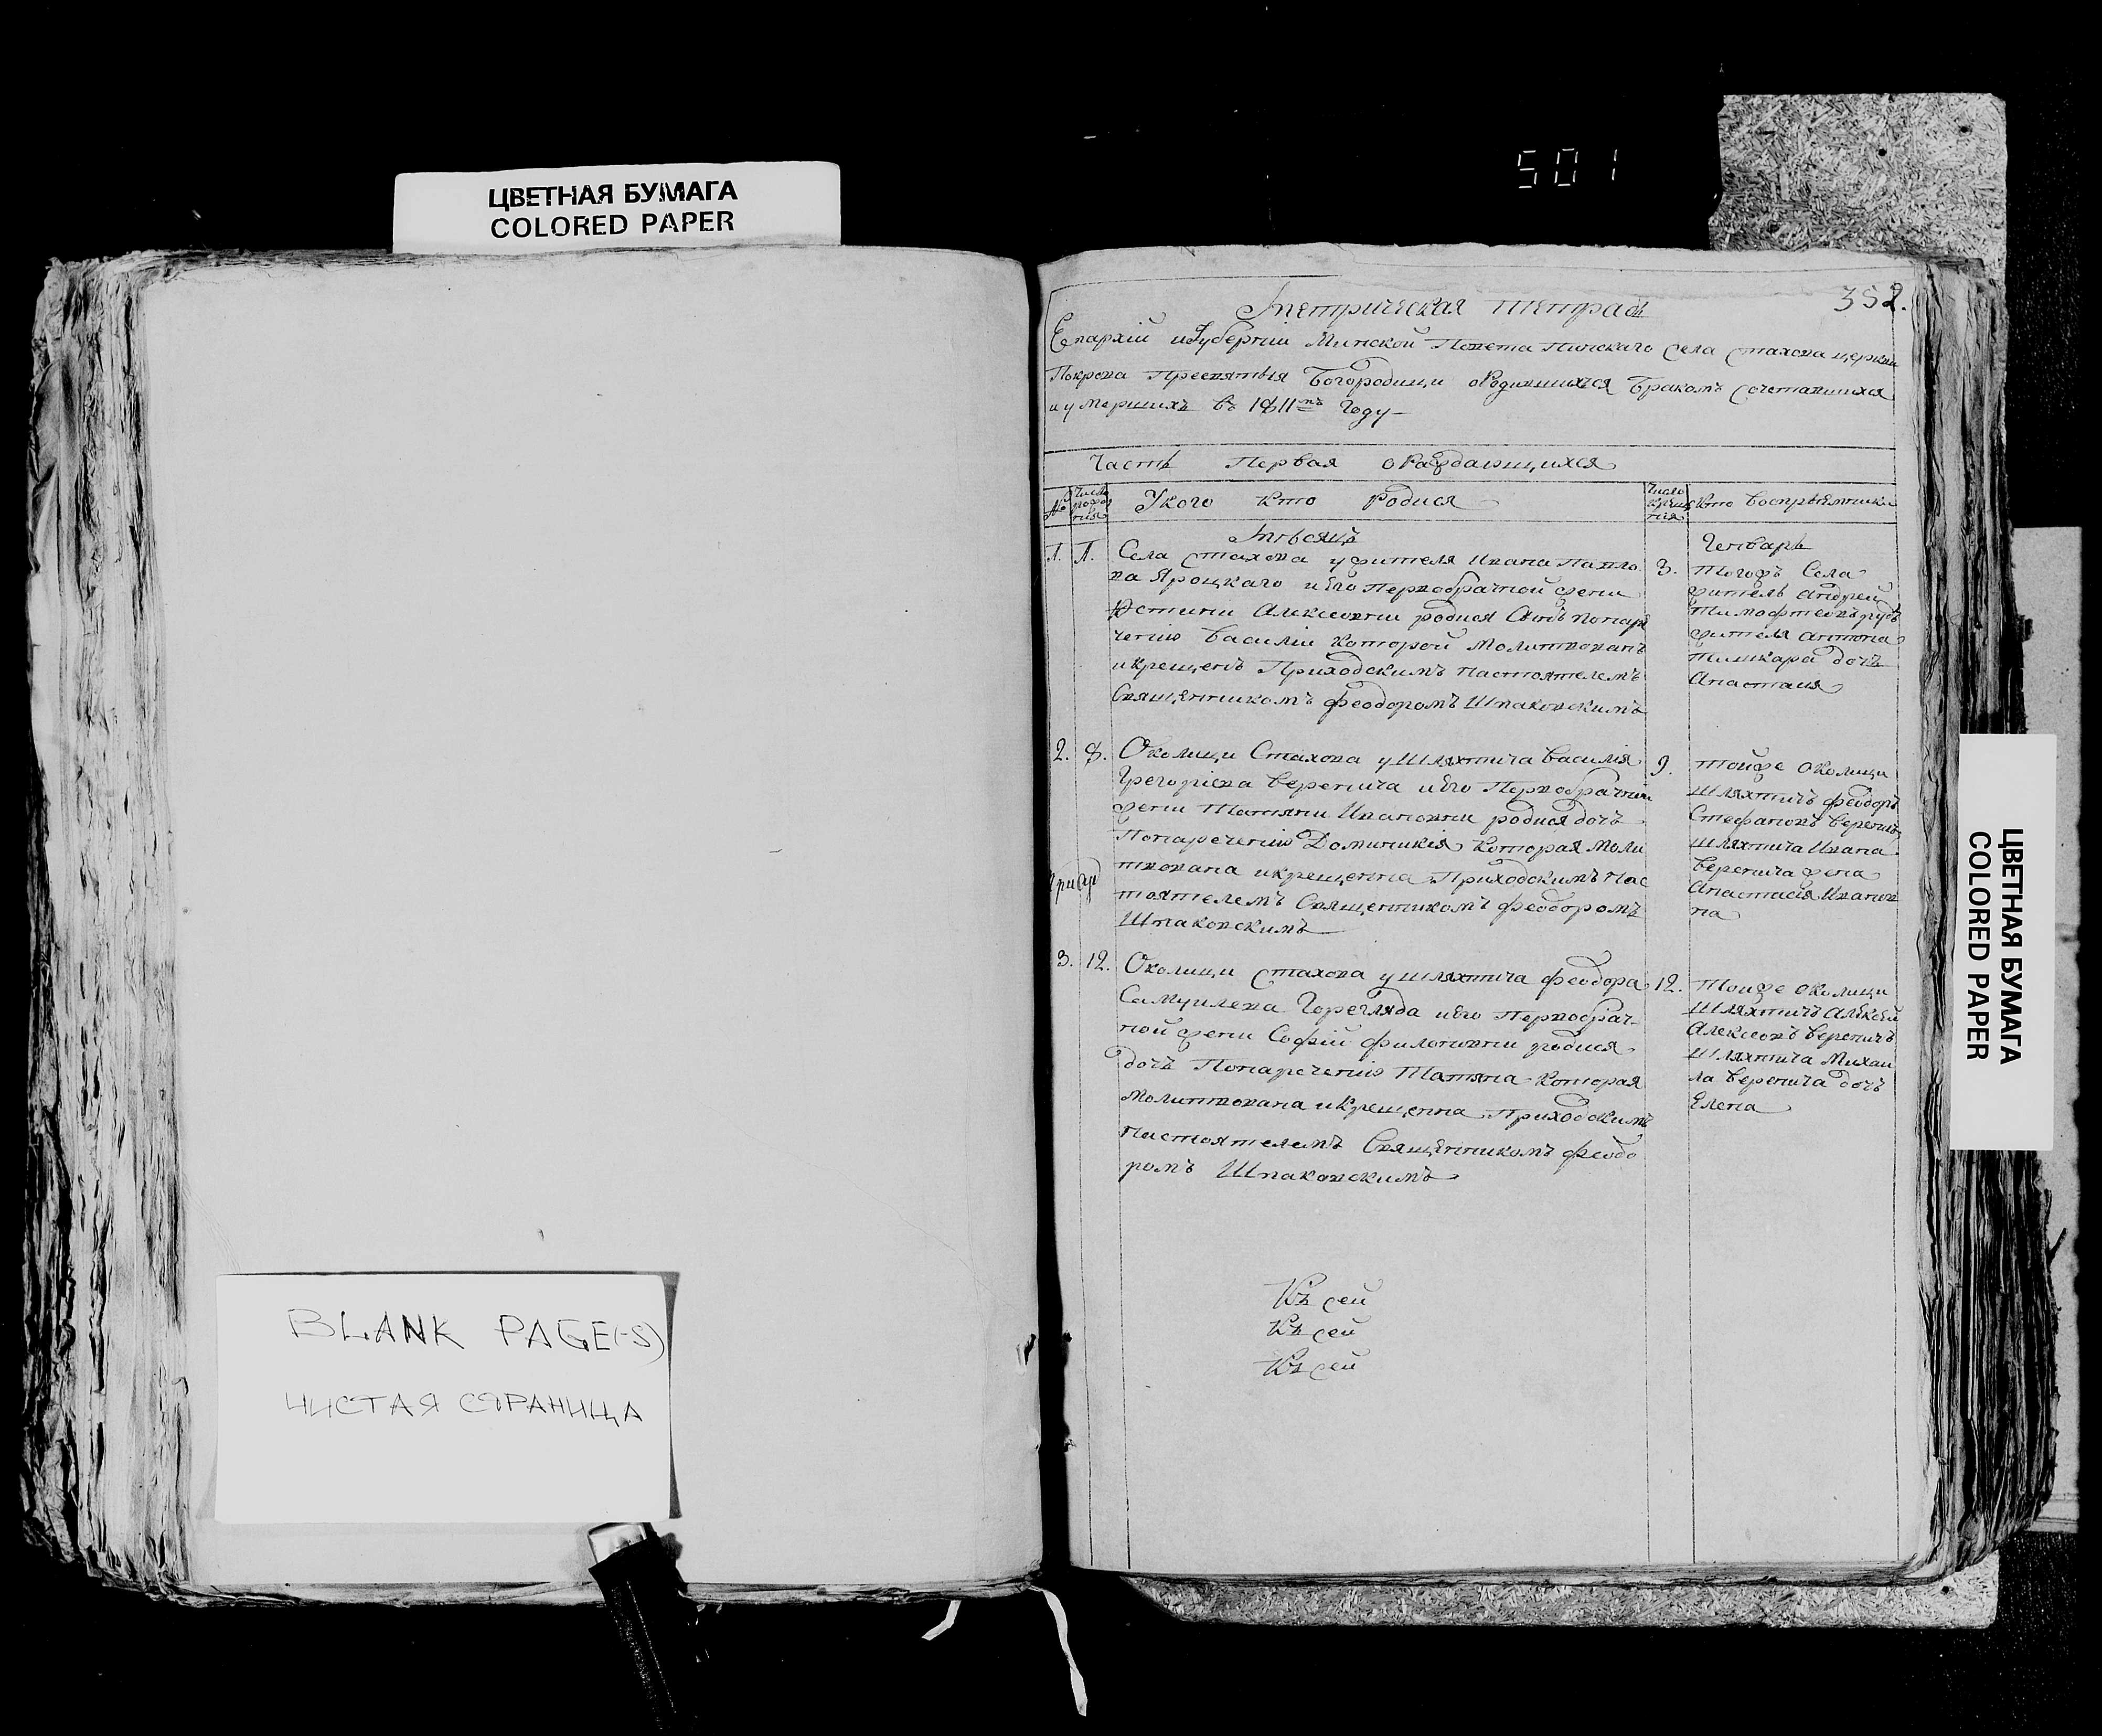 501
ЦВЕТНАЯ БУМАГА
COLORED PAPER
BLANK PAGE(-S)
ЧИСТАЯ СТРАНИЦА
352.
Метрическая тетрадь
Епархіи и Губерніи Минской Повета Пинскаго Села Стахова церкви
Покрова Пресвятыя Богородици о Родившихся Бракомъ Сочетавшихся
и умершихъ въ 1811мъ Году
Часть Первая о Раждающихся
№ Число рожденія У кого кто Родися Число крещенія Кто Воспріемники
Мѣсяцъ Генварь
1. 1. Села Стахова у жителя Ивана Павло
ва Яроцкаго и Его Первобрачной жени
Устини Алексеовни родися Синъ Понаре
ченію Василій Которой Молитвованъ
и крещенъ Приходскимъ Настоятелемъ
Священникомъ Феодоромъ Шпаковскимъ
3. Тогожъ Села
житель Андрей
Тимофтеовъ
жителя Антона
Пишкара дочъ
Анастаия
2. 8. Околици Стахова у Шляхтича Василія
Грегоріева Веренича и Его Первобрачной
жени Татяни Ивановни родися дочъ
Понареченію Доминикія Которая Моли
твована и крещенна Приходскимъ Нас
тоятелемъ Священникомъ Феодоромъ
Шпаковскимъ
9. Тойже Околици
Шляхтичъ Феодоръ
Стефановъ Вереничъ
Шляхтича Ивана
Веренича жена
Анастасія Иванов
на
3. 12. Околици Стахова у шляхтича Феодора
Самуилева Горегляда и Его Первобрач-
ной жени Софіи Филоновни родися
дочъ Понареченію Татяна Которая
Молитвована и Крещенна Приходскимъ
Настоятелемъ Священникомъ Феодо
ромъ Шпаковскимъ
12. Тойже Околици
Шляхтичъ Алексей
Алексеовъ Вереничъ
Шляхтича Михаи
ла Веренича дочъ
Елена
Къ сей
Къ сей
Къ сей
ЦВЕТНАЯ БУМАГА
COLORED PAPER